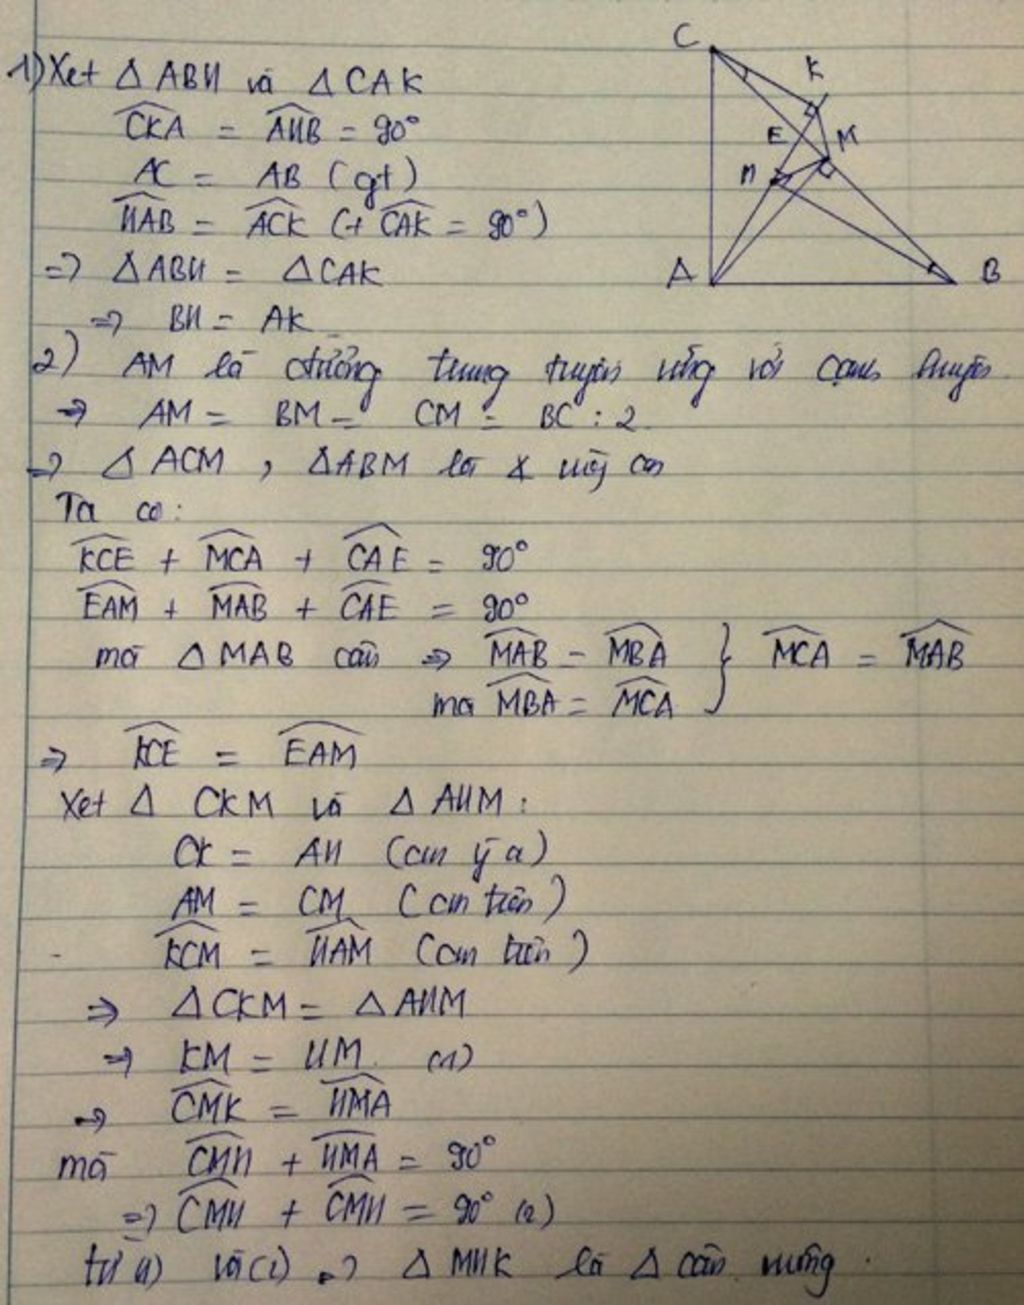 C
K
E
M
H
A
B
1) Xét Δ ABH và Δ CAK
CKA = AHB = 90°
AC = AB (gt)
HAB = ACK (+ CAK = 90°)
=> Δ ABH = Δ CAK
=> BH = AK
2) AM là đường trung tuyến ứng với cạnh huyền
=> AM = BM = CM = BC : 2
=> Δ ACM , Δ ABM là Δ vuông cân
Ta có:
KCE + MCA + CAE = 90°
EAM + MAB + CAE = 90°
mà Δ MAB cân => MAB = MBA } MCA = MAB
mà MBA = MCA
=> KCE = EAM
Xét Δ CKM và Δ AHM :
CK = AH (cm ý a)
AM = CM (cm trên)
KCM = HAM (cm trên)
=> Δ CKM = Δ AHM
=> KM = HM (1)
=> CMK = HMA
mà CMH + HMA = 90°
=> CMH + CMH = 90° (2)
từ (1) và (2) => Δ MHK là Δ cân vuông.